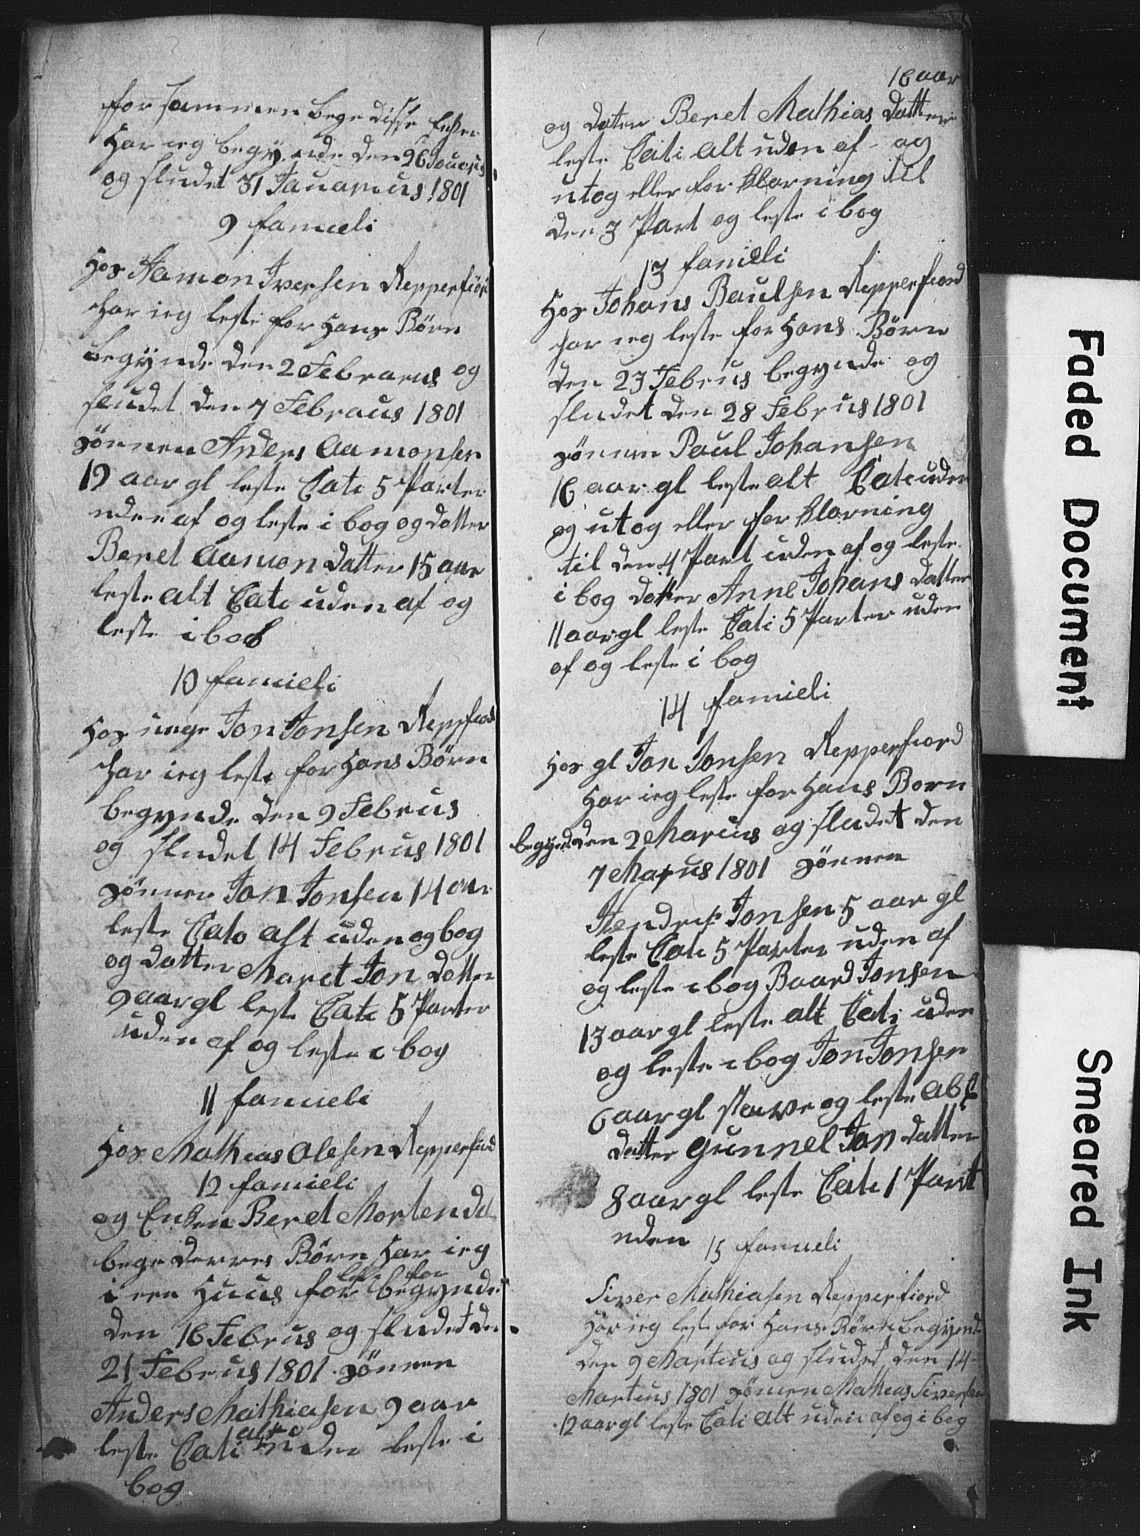 for sammen bege disse Enker
Har ieg begynde den 26 Januarius
og sludet 31 Januarius 1801
9 famieli
Hos Aamon Iversen Repperfiord
Har ieg leste for Hans Børn
begynde den 2 Febraeus og
sludet den 7 Febraus 1801
Sønnen Anders Aamonsen
19 aar gl leste Cate 5 Parter
uden af og leste i bog og datter
Beret Aamon datter 15 aar
leste alt Cate uden af og
leste i bog
10 famieli
Hos unge Jon Jonsen Reppfiord
Har ieg leste for Hans Børn
begynde den 9 Febrius
og sludet 14 Febrius 1801
Sønnen Jon Jonsen 14 aar
leste Cato alt uden og bog
og datter Maret Jon datter
9 aar gl leste Cate 5 Parter
uden af og leste i bog
11 famieli
Hos Mathias Olesen Repperfiord
12 famieli
og Enken Beret Morten dat
bege derres Børn Har ieg
leste for
i een Huus for begynde
den 16 Febrius og sludet den
21 Febrius 1801 Sønnen
Anders Mathiasen 9 aar
leste Cati alt uden leste i
bog
16 aar
og datter Beret Mathias datter
leste Cati alt uden af og
utog eller for klarning til
den 3 Part og leste i bog
13 famieli
Hos Johans Paulsen Repperfiord
Har ieg leste for Hans Børn
den 23 Febrius begynde og
sludet den 28 Febrius 1801
Sønnen Paul Johansen
16 aar gl leste alt Cate uden
og utog eller for klarning
til den 4 Part uden af og leste
i bog datter Anne Johans datter
11 aar gl leste Cati 5 Parter uden
af og leste i bog
14 famieli
Hos gl Jon Jonsen Repperfiord
Har ieg leste for Hans Børn
begynde den 2 Marcius og sludet den
7 Marius 1801 Sønnen
Hendrik Jonsen 5 aar gl
leste Cate 5 Parter uden af
og leste i bog Baard Jonsen
13 aar gl leste alt Cati uden
og leste i bog Jon Jonsen
6 aar gl stave og leste ab
datter Gunnel Jon datter
8 aar gl leste Cati 1 Part
uden
15 famieli
Siver Mathiasen Repperfiord
Har ieg leste for Hans Børn begynde
den 9 Martius og sludet den 14
Martius 1801 Sønnen Mathias Siversen
12 aar gl leste Cati alt uden af og i bog
Faded Document
Smeared Ink